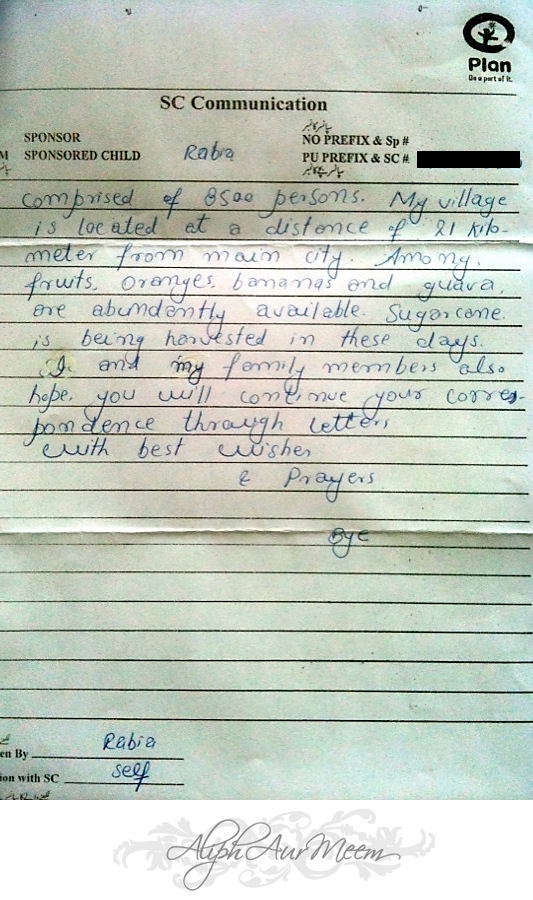 Plan
Be a part of it.
SC Communication
SPONSOR
NO PREFIX & Sp #
M SPONSORED CHILD Rabia
PU PREFIX & SC #
comprised of 8500 persons. My village
is located at a distance of 21 kilo-
meter from main city. Among
fruits, oranges, bananas and guava,
are abundently available. Sugarcane
is being harvested in these days.
I and my family members also
hope, you will continue your corres-
pondence through letters
with best wishes
& Prayers
Bye
en By Rabia
ion with SC self
Aliph Aur Meem